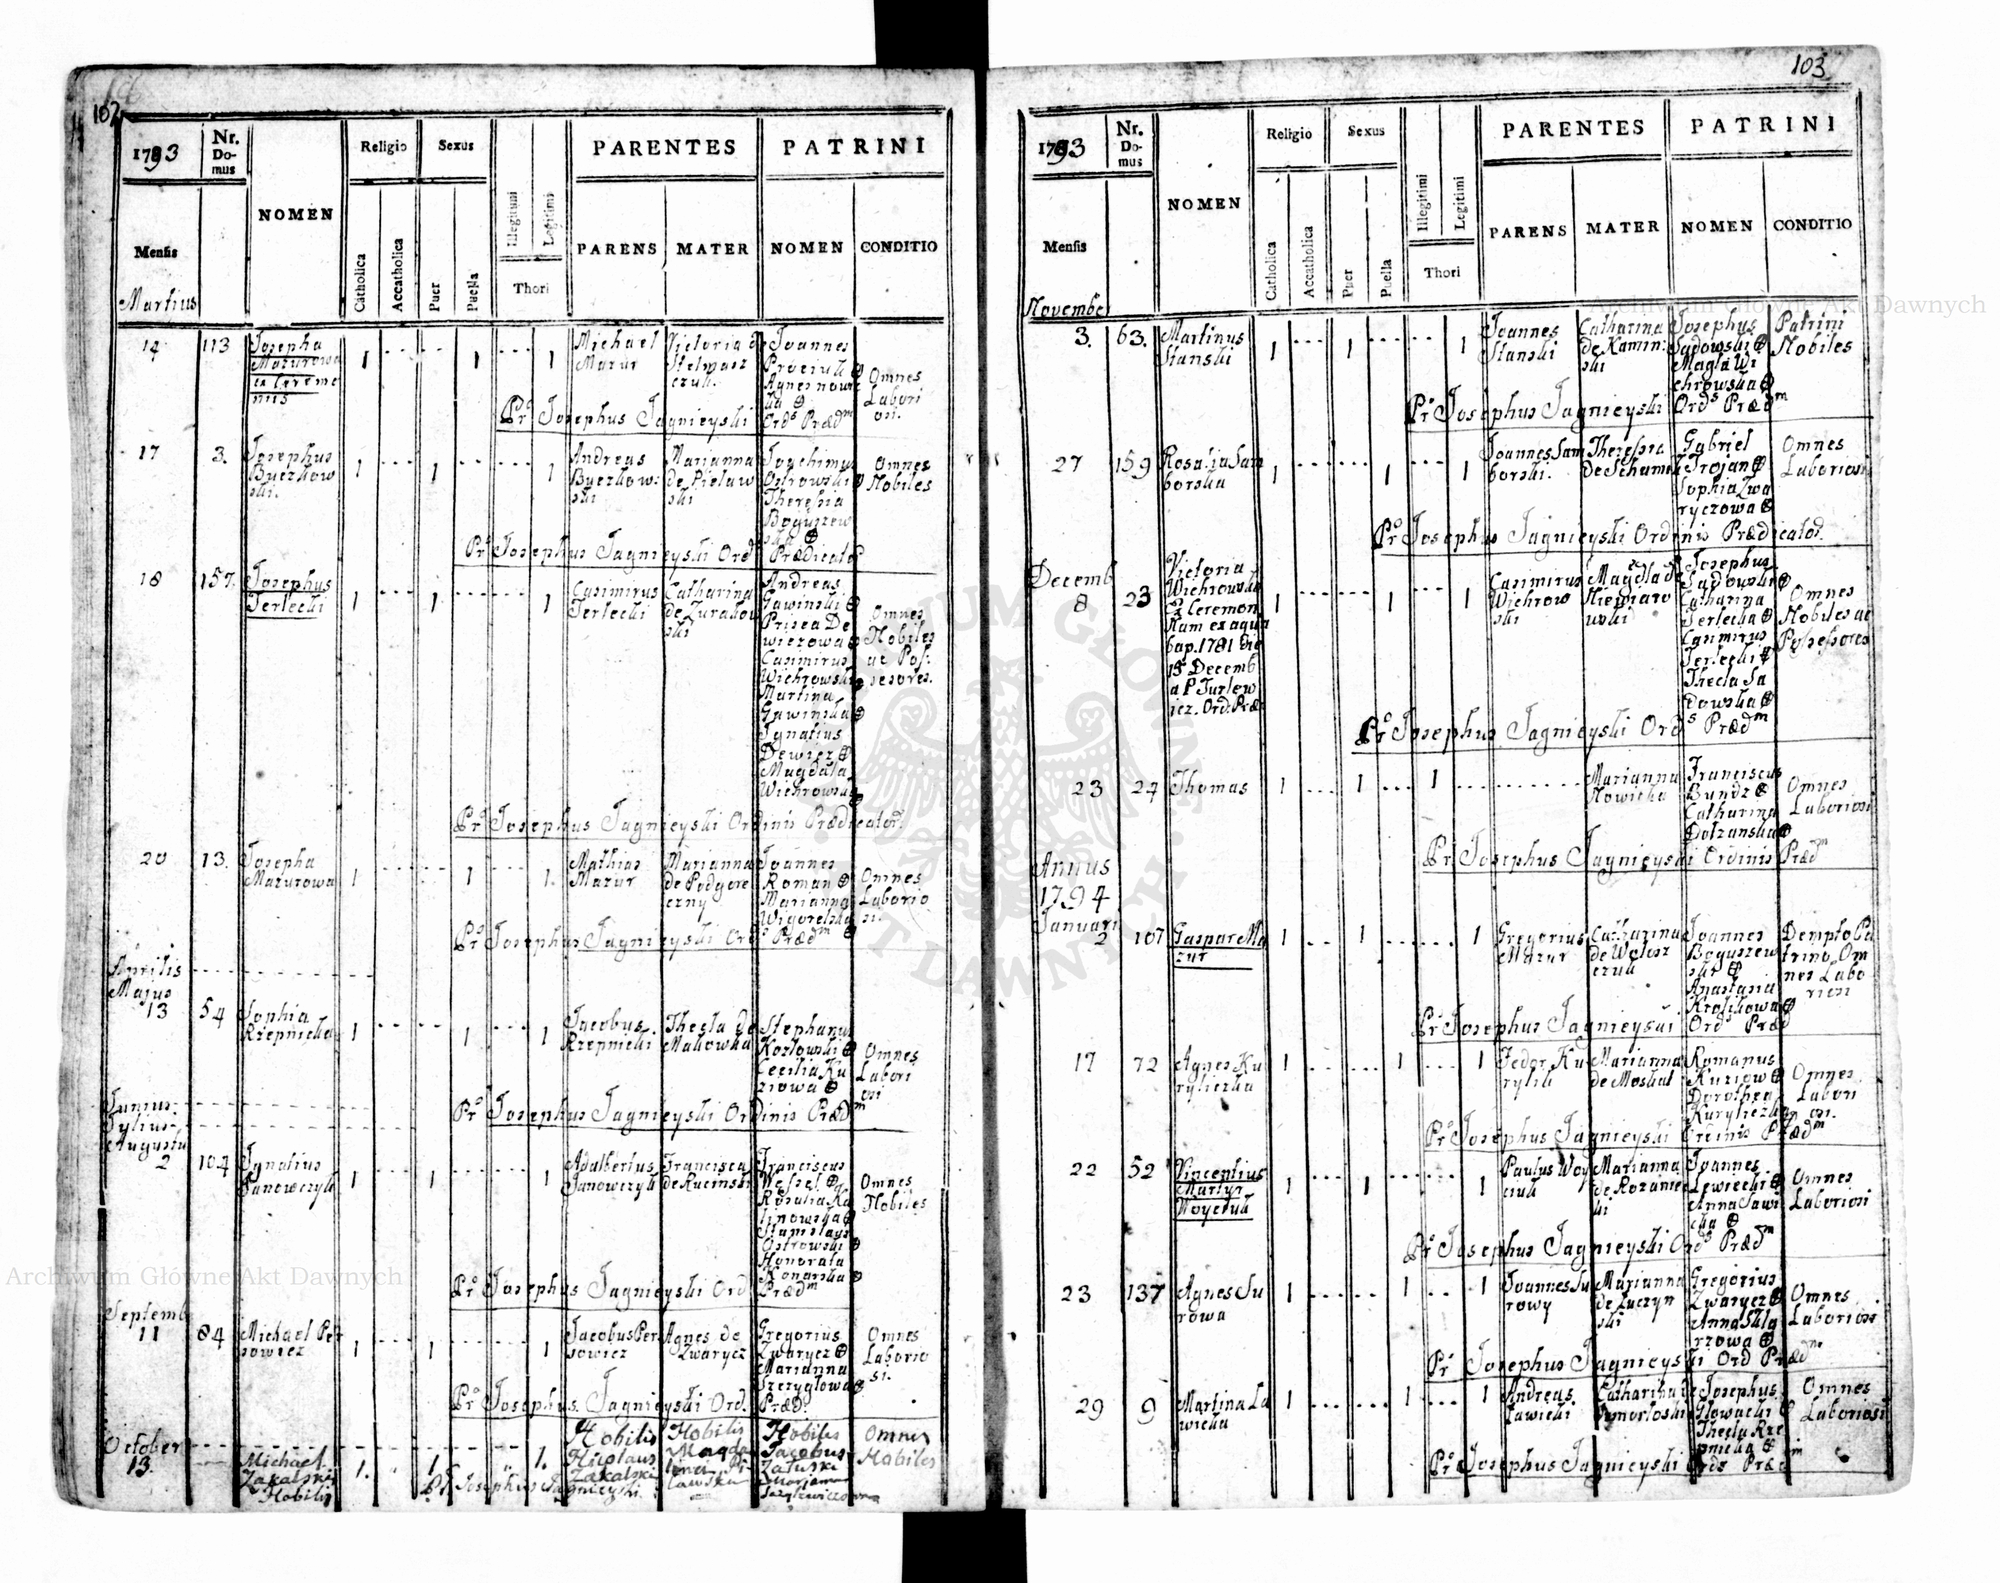 102
1793
Nr. Do- mus
NOMEN
Religio
Sexus
PARENTES
PATRINI
Mensis
Catholica
Accatholica
Puer
Puella
Illegitimi
Legitimi
Thori
PARENS
MATER
NOMEN
CONDITIO
Martius
14 113 Josepha Mazurowa
1 1 1
Michael Mazur
Joannes
Omnes Laboriosi.
Pr Josephus Jagnieyski Ords Prædm
17 3. Josephus Buczkowski.
1 1 1
Andreas Buczkowski
Marianna de Pielawski
Joachimus Ostrowski Theresia Boguszewska
Omnes Nobiles
Pr Josephus Jagnieyski Ord Prædicator
18 157. Josephus Terlecki
1 1 1
Casimirus Terlecki
Catharina de Zurakowski
Andreas Gawinski Prisca Dewiczowa Casimirus Wichrowski Martina Gawinska Ignatius Dewicz Magdala Wichrowska
Omnes Nobiles ac Possesores.
Pr Josephus Jagnieyski Ordinis Prædicator.
20 13. Josepha Mazurowa
1 1 1.
Mathias Mazur
Marianna de Podgoreczny
Joannes Roman Marianna
Omnes Laboriosi.
Pr Josephus Jagnieyski Ords Prædm
Aprilis
Majus
13 54 Sophia Rzepnicka
1 1 1
Jacobus Rzepnicki
Thecla de Makowka
Stephanus Kozlowski Cecilia Kuziowa
Omnes Laboriosi
Pr Josephus Jagnieyski Ordinis Prædm
Junius.
Julius
Augustus
2 104 Ignatius Janowczyk
1 1 1
Adalbertus Janowczyk
Francisca de Rucinski
Franciscus Wessel Rosalia Kalinowska Stanislaus Ostrowski Honorata Konarska
Omnes Nobiles
Pr Josephus Jagnieyski Ord Prædm
Septemb
11 84 Michael Persowicz
1 1 1
Jacobus Persowicz
Agnes de Zwarycz
Gregorius Zwarycz Marianna Szczyglowa
Omnes Laboriosi.
Pr Josephus Jagnieyski Ord. Præd.
October
13. Michael Zakalski Nobilis
1. 1 1.
Nobilis Nicolaus Zakalski
Nobilis
Nobilis Jacobus Zaluski
Omnes Nobiles
Pr Josephus Jagnieyski
103
1793
Nr. Do- mus
NOMEN
Religio
Sexus
PARENTES
PATRINI
Mensis
Catholica
Accatholica
Puer
Puella
Illegitimi
Legitimi
Thori
PARENS
MATER
NOMEN
CONDITIO
November
3. 63. Martinus Stanski
1 1 1
Joannes Stanski
Catharina de Kaminski
Josephus Sadowski Magla Wichrowska
Patrini Nobiles
Pr Josephus Jagnieyski Ords Prædm
27 159 Rosalia Samborska
1 1 1
Joannes Samborski.
Theressa de Schumek
Gabriel Trojan Sophia Zwaryczowa
Omnes Laboriosi
Pr Josephus Jagnieyski Ordinis Prædicator.
Decemb
8 23 Victoria Wichrowska Ex Ceremon Nam ex aqua bap. 1781 die 15 Decemb a P Turlewicz. Ord. Præd
1 1 1
Casimirus Wichrowski
Magdla de Niewiarowski
Josephus Sadowski Catharina Terlecka Casimirus Terlecki Thecla Sadowska
Omnes Nobiles ac Possessores
Pr Josephus Jagnieyski Ords Prædm
23 24 Thomas
1 1 1
Marianna Nowicka
Franciscus Bundz Catharina Dolzanska
Omnes Laboriosi
Pr Josephus Jagnieyski Ordinis Prædm
Annus
1794
Januari
2 107 Gaspar Mazur
1 1 1
Gregorius Mazur
Catharina de Woloszczuk
Joannes Boguszewski Anastasia Krolikowa
Dempto Patrino Omnes Laboriosi
Pr Josephus Jagnieyski Ords Præd
17 72 Agnes Kuryliczka
1 1 1
Fedor Kurylik
Marianna de Moskal
Romanus Kuziow Dorothea Kuryliczka
Omnes Laboriosi.
Pr Josephus Jagnieyski Ordinis Prædm
22 52 Vincentius Martyr Woyciuk
1 1 1
Paulus Woyciuk
Marianna de Rozaniecki
Joannes Lewiecki Anna Sawicka
Omnes Laboriosi
Pr Josephus Jagnieyski Ords Prædm
23 137 Agnes Surowa
1 1 1
Joannes Surowy
Marianna de Luczynski
Gregorius Zwarycz Anna Sklarzowa
Omnes Laboriosi
Pr Josephus Jagnieyski Ord Prædm
29 9 Martina Lawicka
1 1 1
Andreas Lawicki
Catharina de
Josephus Glowacki Thecla Rzepnicka
Omnes Laboriosi
Pr Josephus Jagnieyski Ords Prædm
Archiwum Główne Akt Dawnych
Archiwum Główne Akt Dawnych
ARCHIWUM GŁÓWNE AKT DAWNYCH